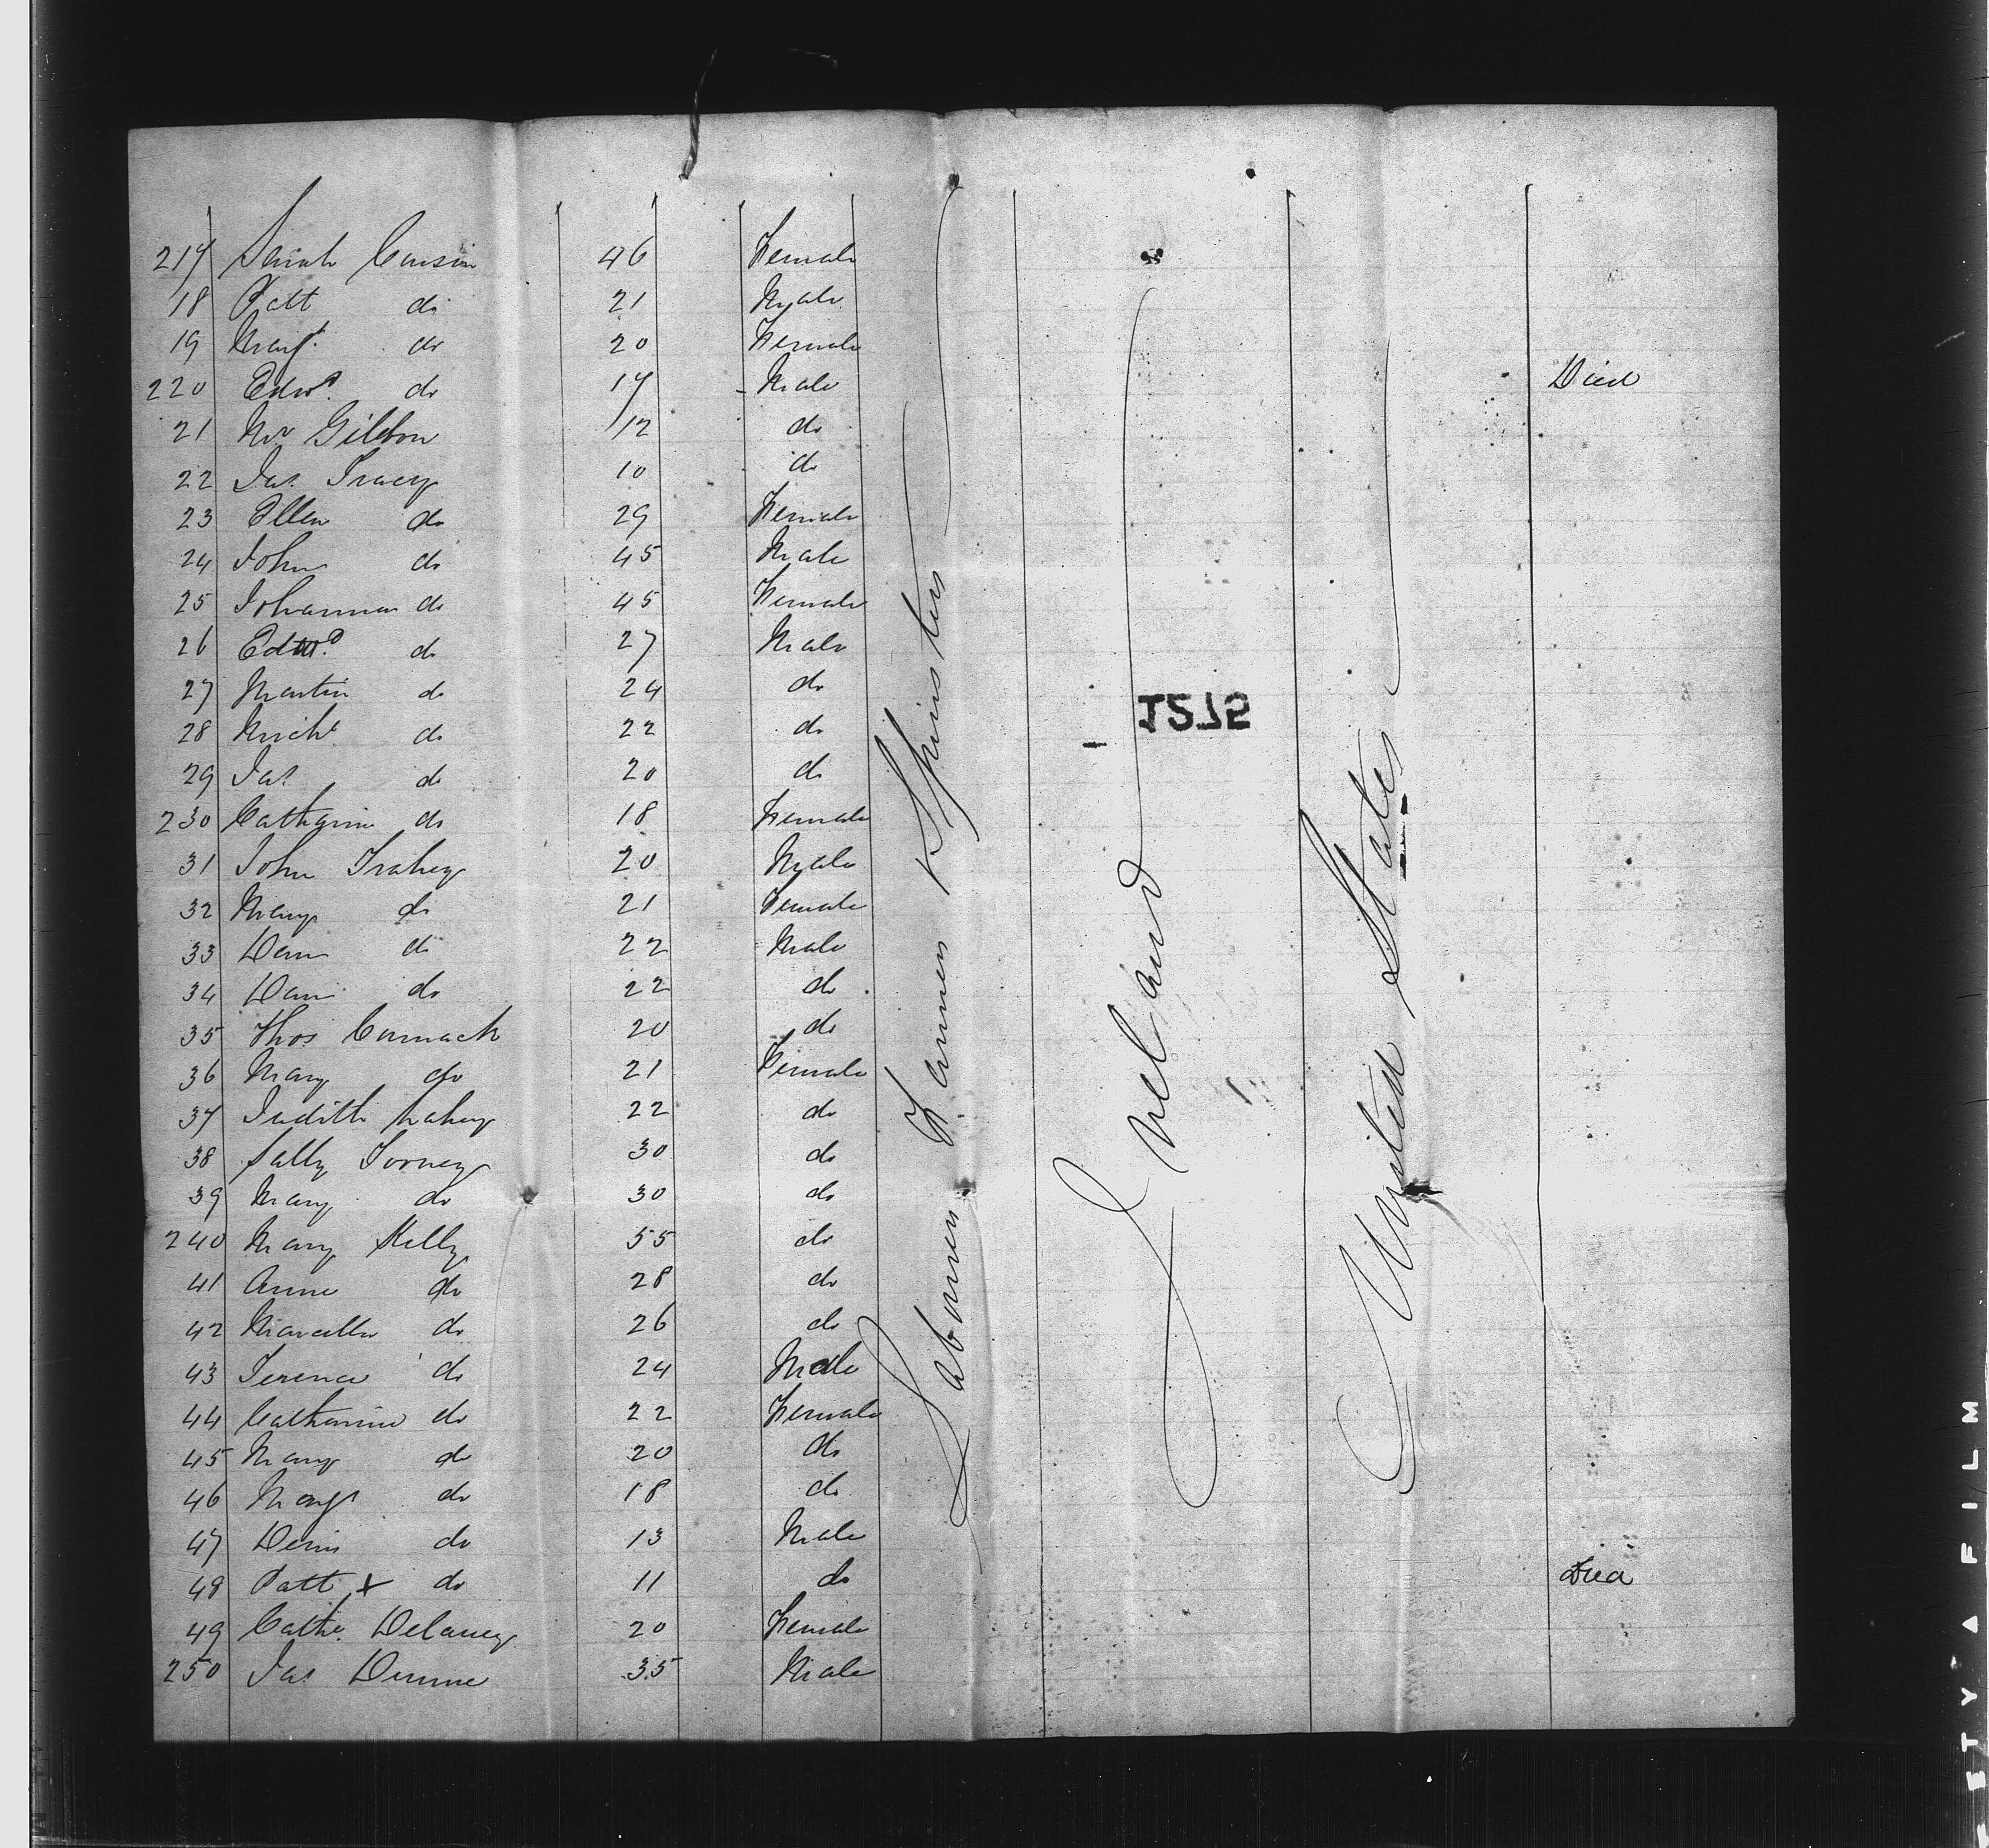 217 Sarah 46 Female
18 Patt do 21 Male
19 Margt. do 20 Female
220 Edwd. do 17 Male Died
21 Mr Gibbon /12 do
22 Jas. Tracey 10 do
23 Ellen do 29 Female
24 John do 45 Male
25 Johanna do 45 Female
26 Edwd. do 27 Male
27 Martin do 24 do
28 Michl do 22 do
29 Jas do 20 do
230 Catharine do 18 Female
31 John Trahey 20 Male
32 Mary do 21 Female
33 do 22 Male
34 do 22 do
35 Thos Cormack 20 do
36 Mary do 21 Female
37 Judith 22 do
38 Sally Torney 30 do
39 Mary do 30 do
240 Mary Kelly 55 do
41 Anne do 28 do
42 Marcella do 26 do
43 Terence do 24 Male
44 Catharine do 22 Female
45 Mary do 20 do
46 Margt do 18 do
47 Denis do 13 Male
48 Patt x do 11 do Died
49 Cathe. Delaney 20 Female
250 Jas Dunne 35 Male
Labourers Farmers & Spinsters
Ireland
United States
1572
ETY ▲ FILM